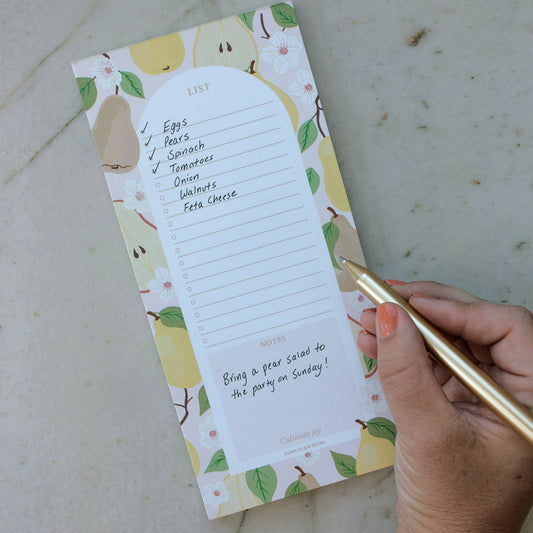 LIST
Eggs
Pears
Spinach
Tomatoes
Onion
Walnuts
Feta Cheese
NOTES
Bring a pear salad to
the party on Sunday!
Cultivate joy